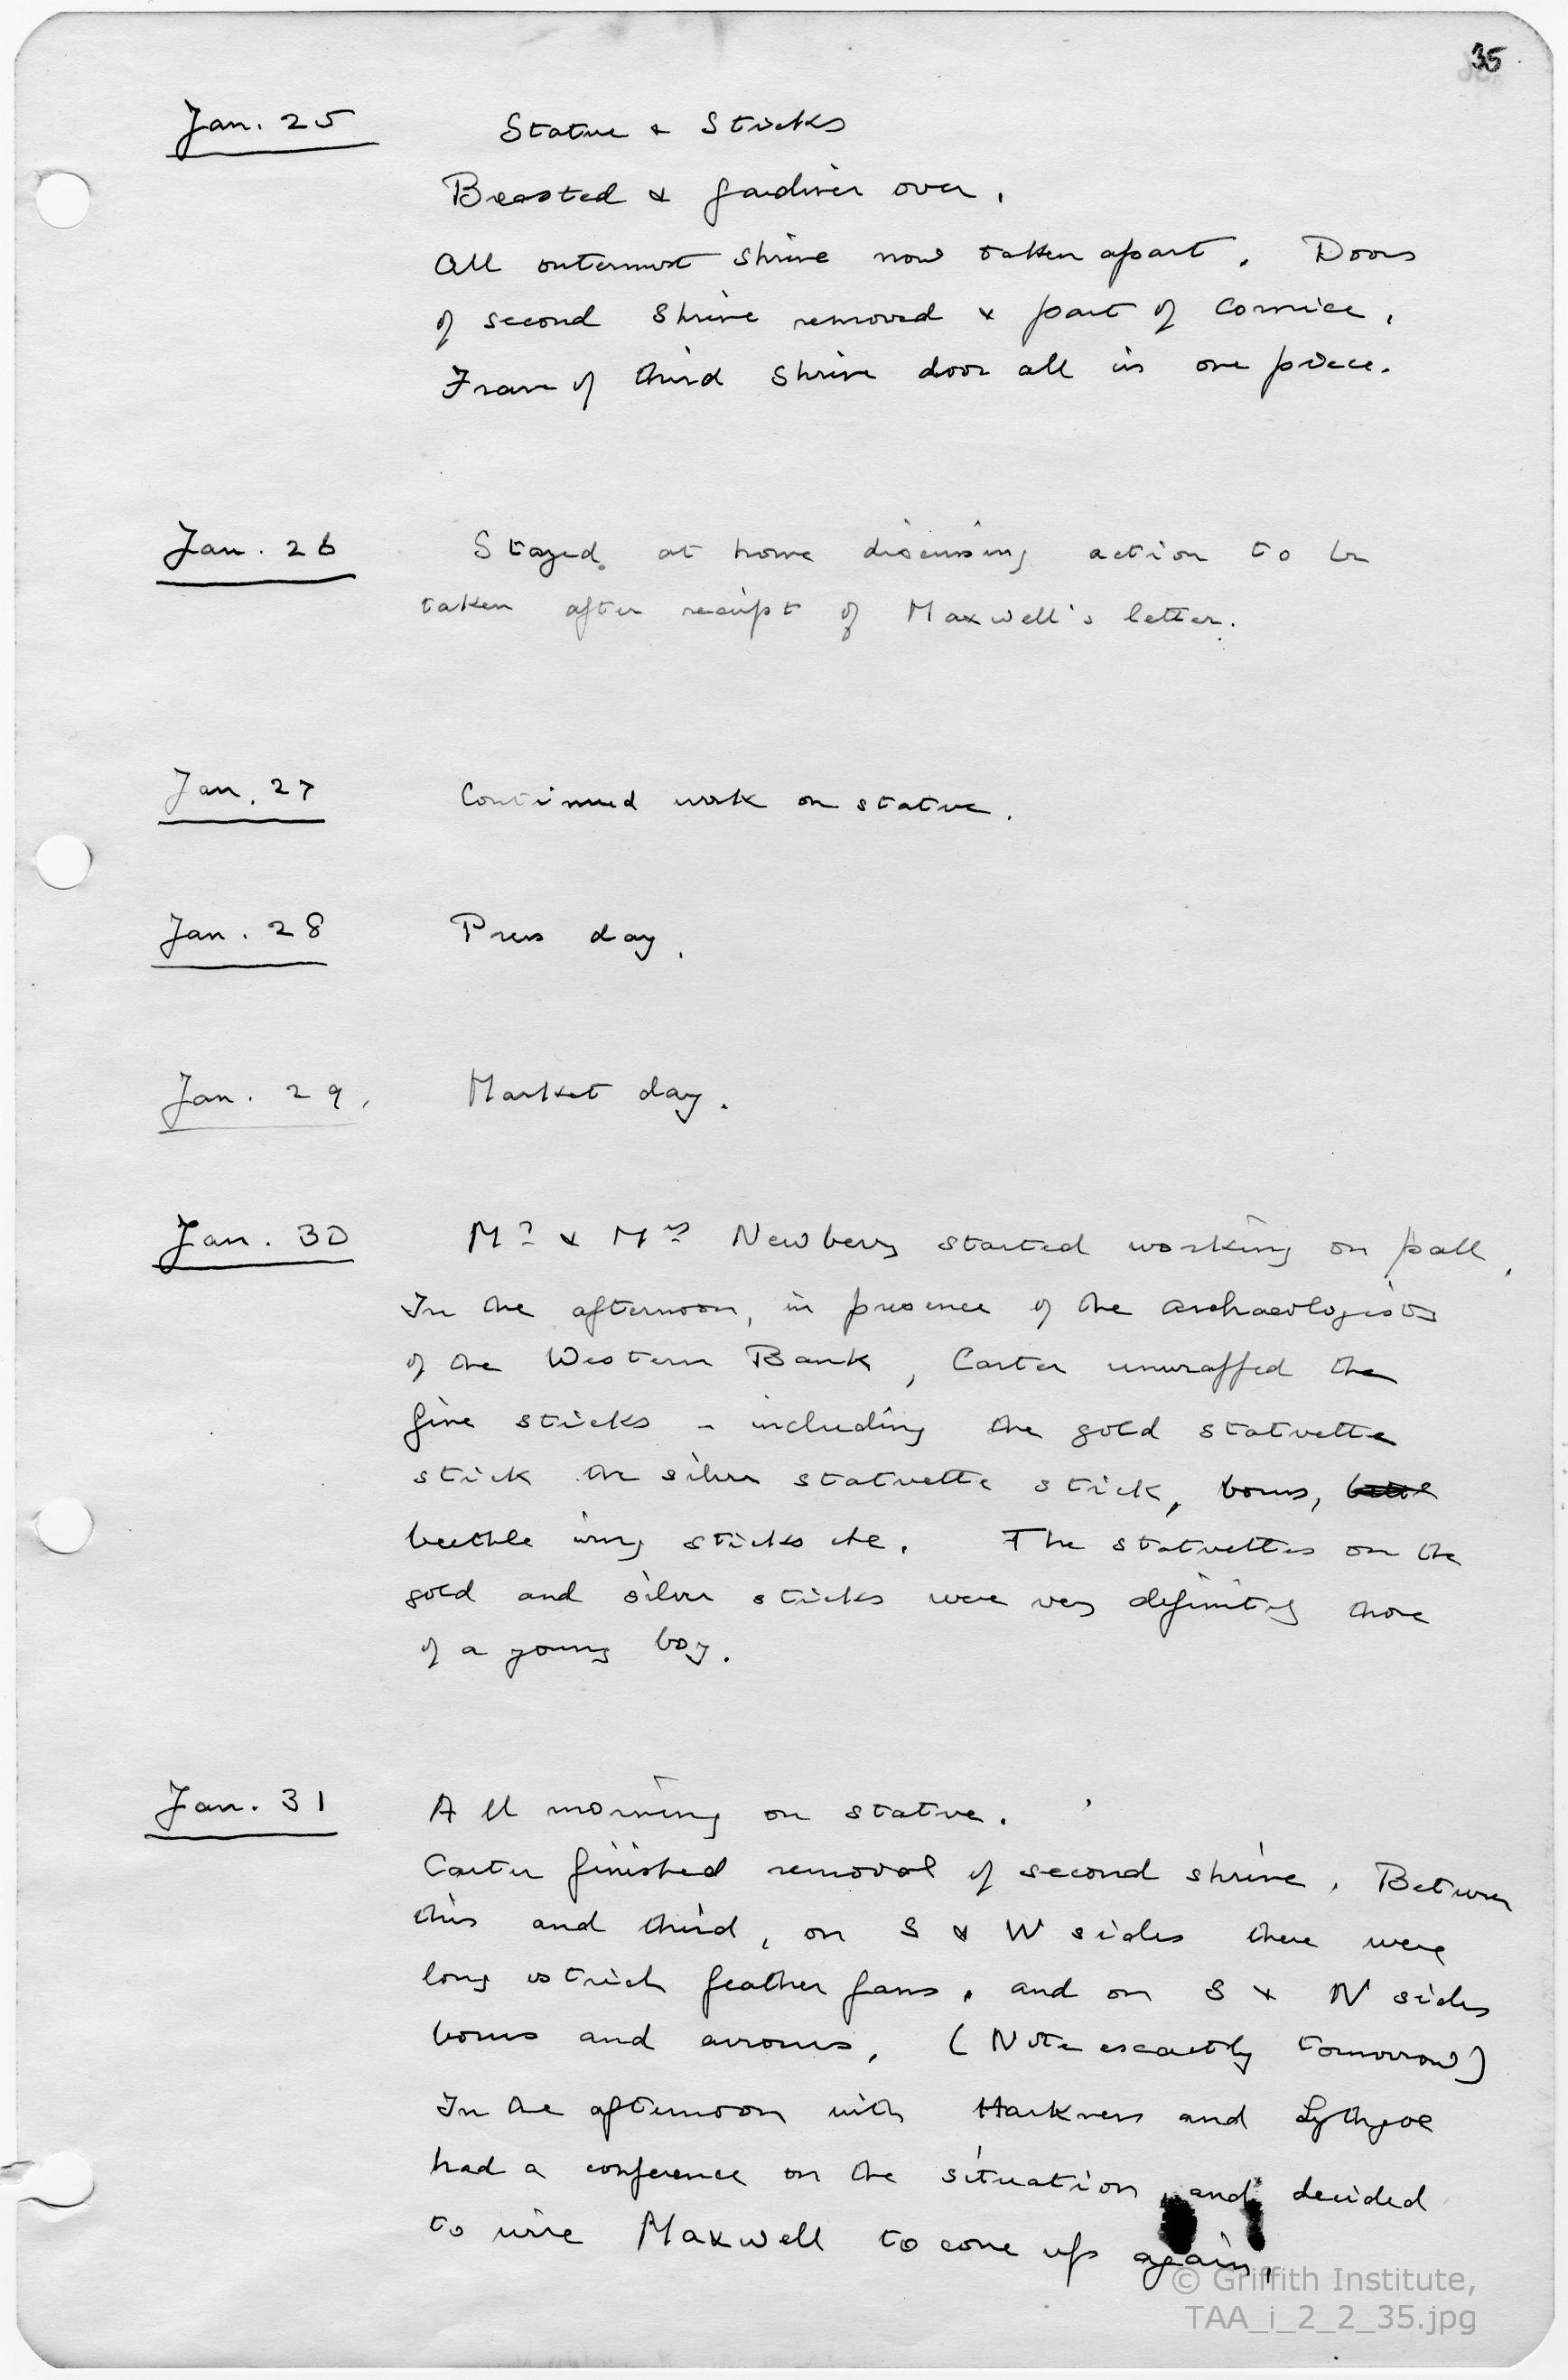 35
Jan. 25 Statue & Sticks
Breasted & Gardiner over.
All outermost shrine now taken apart. Doors
of second shrine removed & part of cornice.
Frame of third shrine door all in one piece.
Jan. 26 Stayed at home discussing action to be
taken after receipt of Maxwell's letter.
Jan. 27 Continued work on statue.
Jan. 28 Press day.
Jan. 29. Market day.
Jan. 30 Mr & Mrs Newberry started working on pall.
In the afternoon, in presence of the archaeologists
of the Western Bank, Carter unwrapped the
fine sticks - including the gold statuette
stick the silver statuette stick, bows,
beethle wing sticks etc. The statuettes on the
gold and silver sticks were very definitely those
of a young boy.
Jan. 31 All morning on statue.
Carter finished removal of second shrine. Between
this and third, on S & W sides there were
long ostrich feather fans, and on S & N sides
bows and arrows. (Note exactly tomorrow)
In the afternoon with Harkness and Lythgoe
had a conference on the situation, and decided
to wire Maxwell to come up again.
© Griffith Institute,
TAA_i_2_2_35.jpg